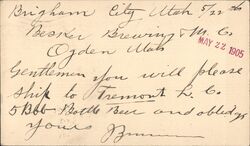 Brigham City Utah 5/22 06
Becker Brewing & M. Co.
Ogden Utah
MAY 22 1905
Gentlemen you will please
ship to Tremont L. C.
5 Bbl Bottle Beer and oblidge
yours